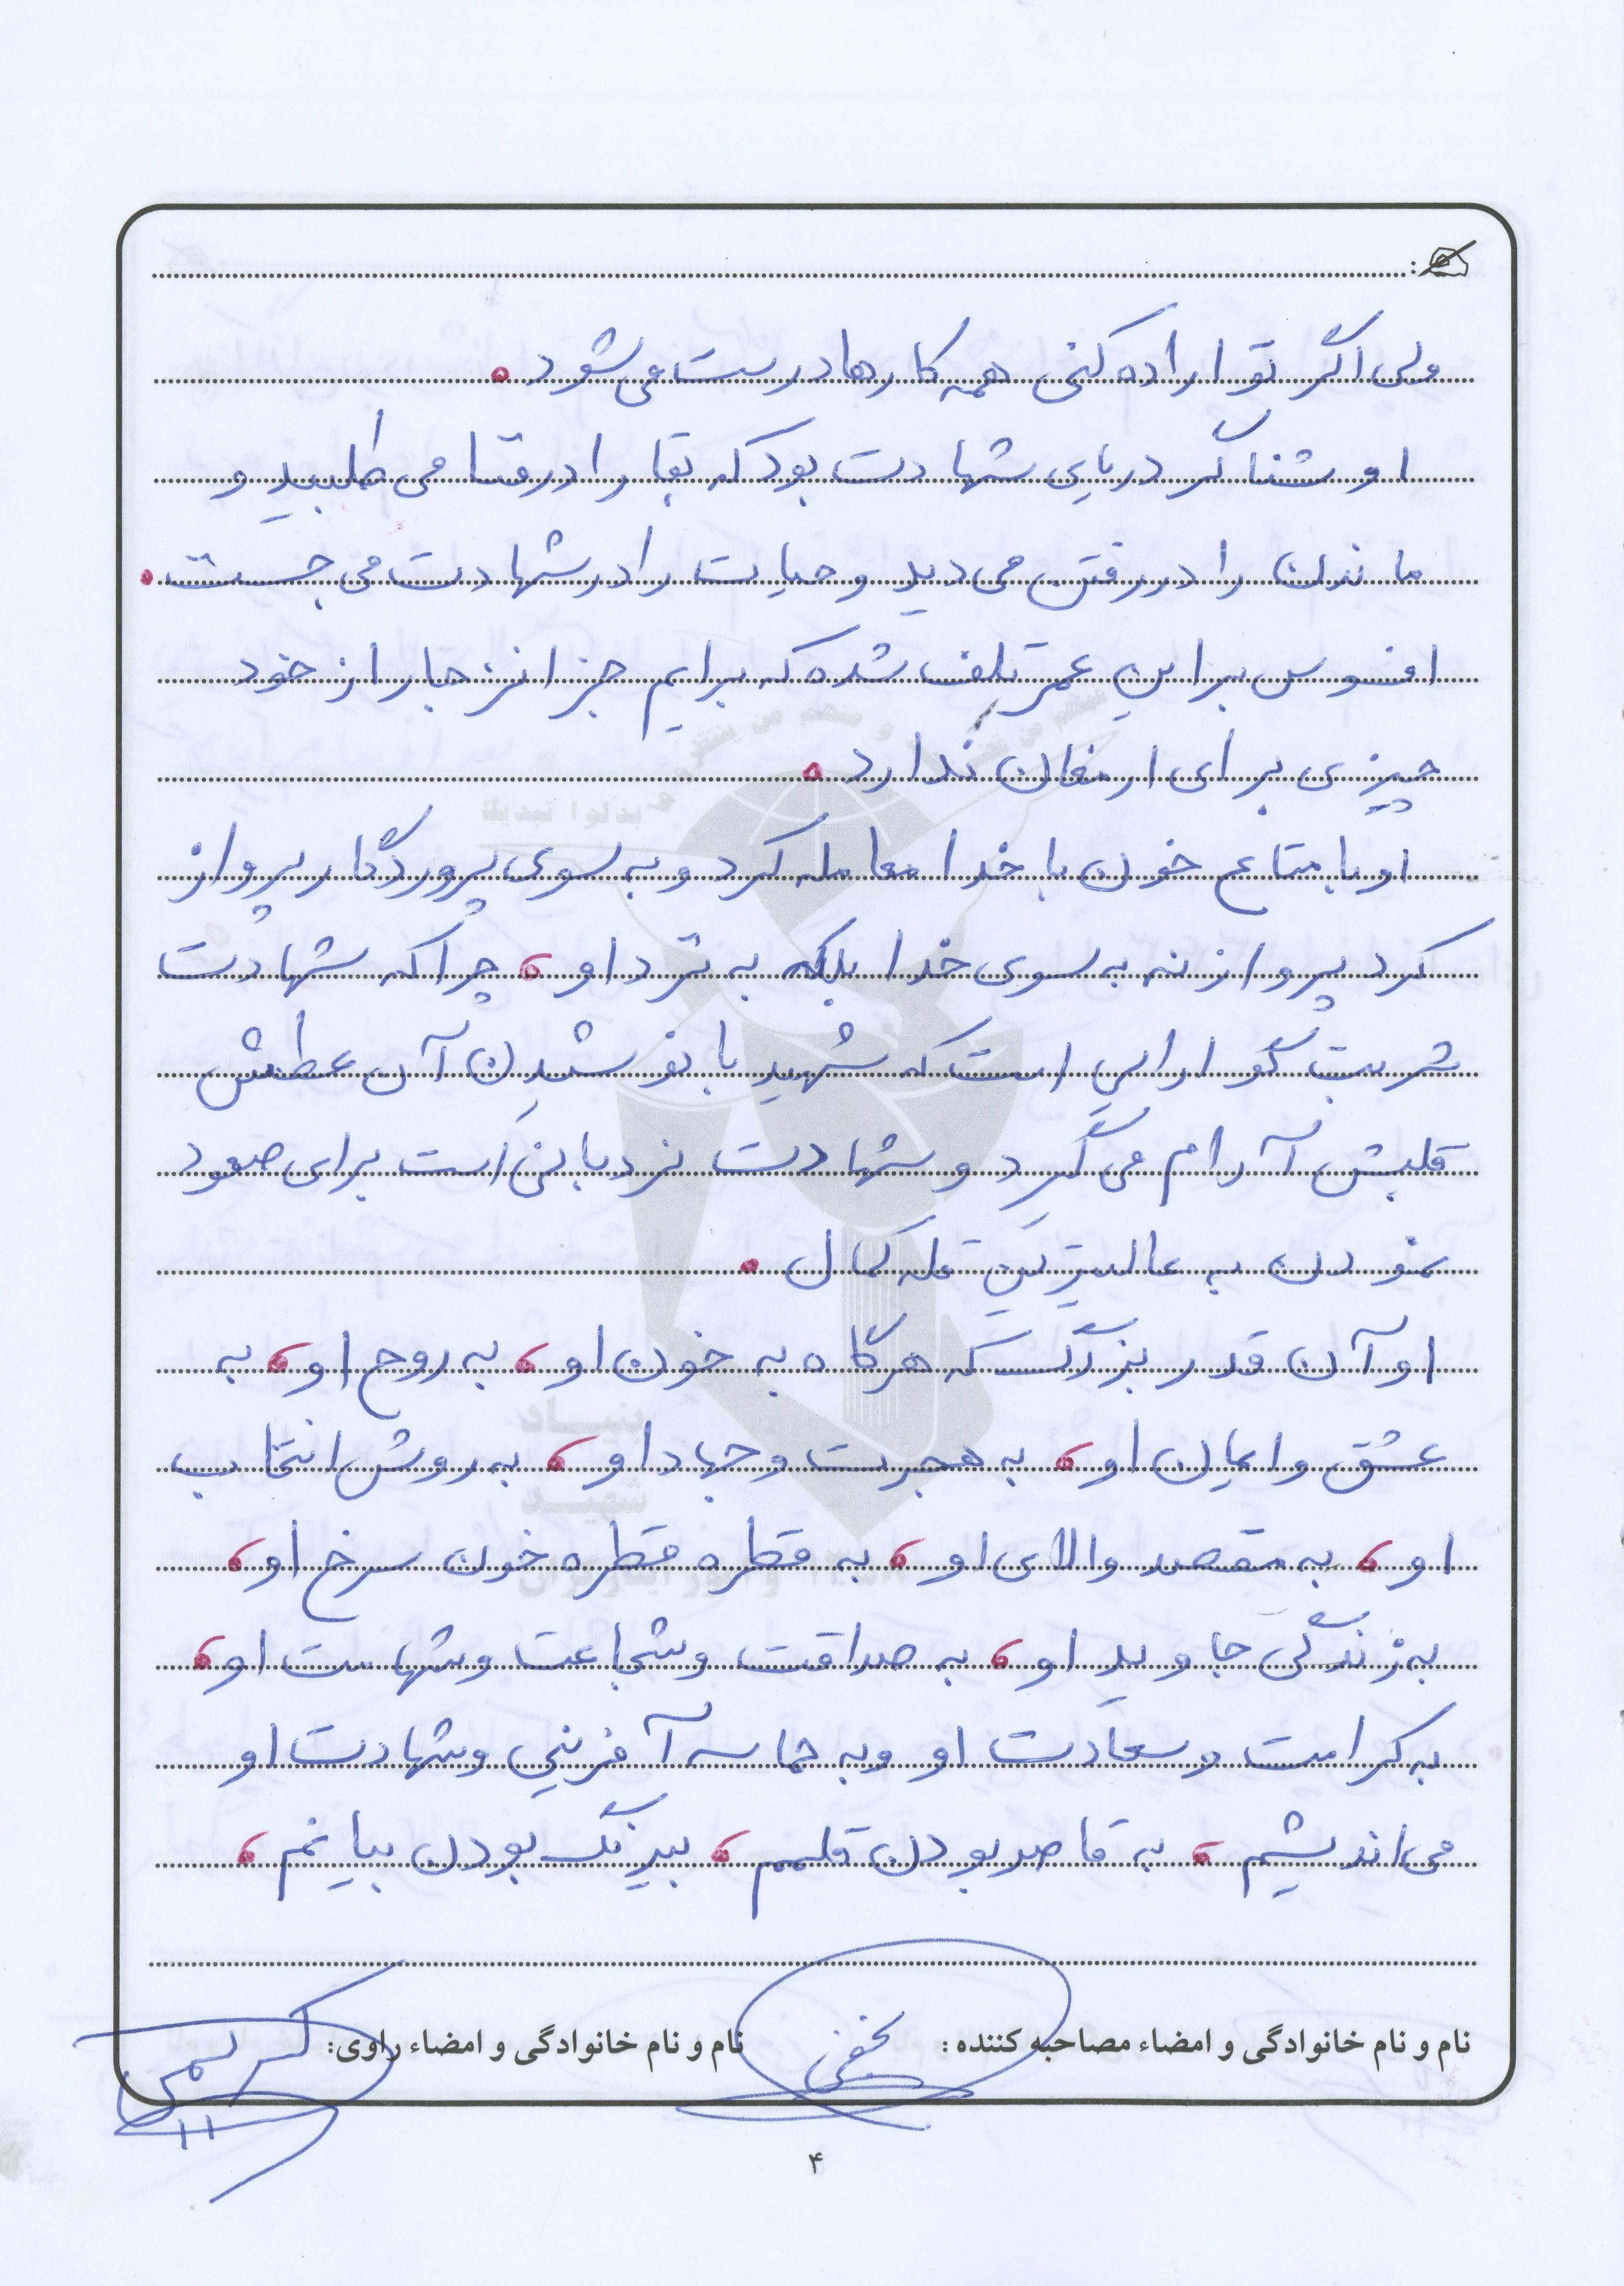 ولی اگر تو اراده کنی همه کارها درست می شود.
او شناگر دریای شهادت بود که بقا را در فنا می طلبید و
ماندن را در رفتن می دید و حیات را در شهادت می جست.
افسوس بر این عمر تلف شده که برایم جز انزجار از خود
چیزی برای ارمغان ندارد.
او با متاع خون با خدا معامله کرد و به سوی پروردگار پرواز
کرد پرواز نه به سوی خدا بلکه به نزد او، چرا که شهادت
شربت گوارایی است که شهید با نوشیدن آن عطش
قلبش آرام می گیرد و شهادت نردبانی است برای صعود
نمودن به عالیترین قله کمال.
او آن قدر بزرگست که هرگاه به خون او، به روح او، به
عشق و ایمان او، به هجرت و جهاد او، به روش انتخاب
او، به مقصد والای او، به قطره قطره خون سرخ او،
به زندگی جاوید او، به صداقت و شجاعت و شهامت او،
به کرامت و سعادت او و به حماسه آفرینی و شهادت او
می اندیشم، به قاصر بودن قلمم، بیرنگ بودن بیانم،
نام و نام خانوادگی و امضاء مصاحبه کننده: نجفی نام و نام خانوادگی و امضاء راوی: کریمی
۴